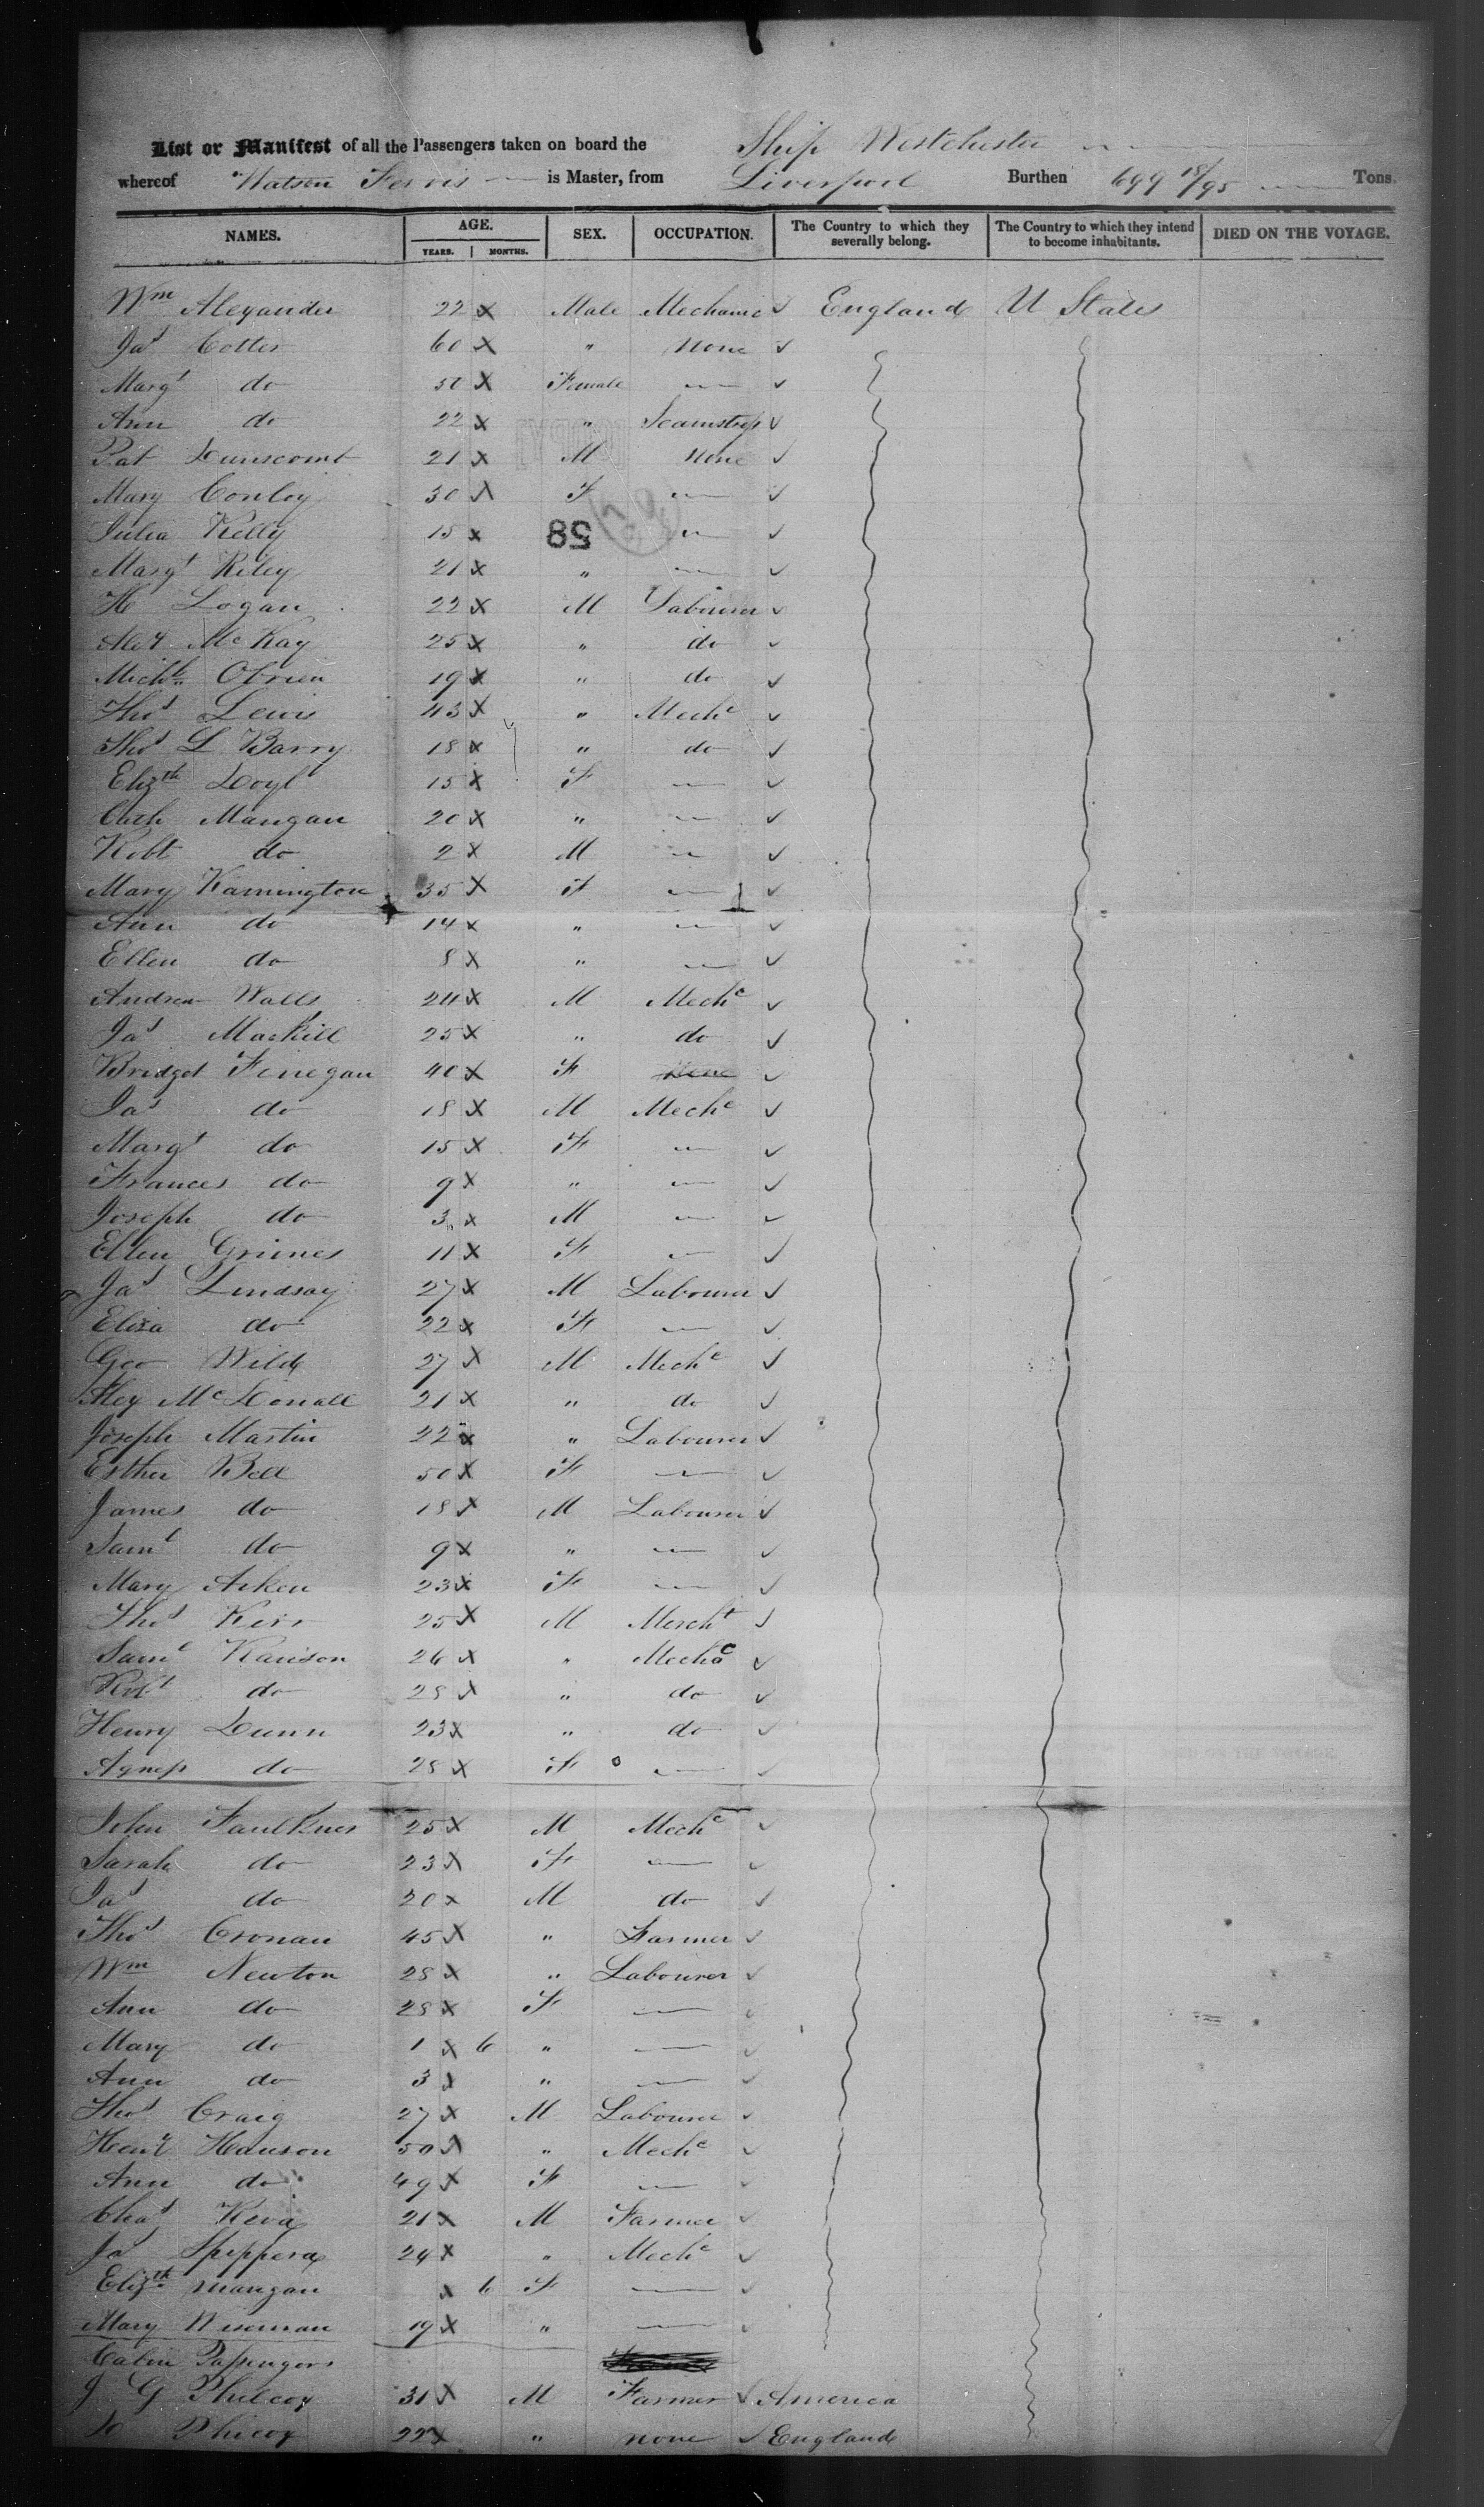 List or Manifest of all the Passengers taken on board the Ship Westchester
whereof Watson Ferris is Master, from Liverpool Burthen 699 18/95 Tons.
NAMES. AGE. SEX. OCCUPATION. The Country to which they severally belong. The Country to which they intend to become inhabitants. DIED ON THE VOYAGE.
YEARS. MONTHS.
Wm Alexander 22 x Male Mechanic ✓ England U States
Jas Cotter 60 x " None ✓
Margt do 50 x Female — ✓
Ann do 22 x " Seamstress ✓
Pat Dunscomb 21 x M None ✓
Mary Conley 30 x F — ✓
Julia Kelly 15 x — ✓
58
Margt Riley 21 x " — ✓
H Logan 22 x M Labourer ✓
Alex McKay 25 x " do ✓
Michl Obrien 19 x " do ✓
Thos Lewis 43 x " Mechc ✓
Thos L Barry 18 x " do ✓
Elizth Doyl 15 x F — ✓
Cath Mangan 20 x " — ✓
Robt do 2 x M — ✓
Mary Kamington 35 x F — ✓
Ann do 14 x " — ✓
Ellen do 8 x " — ✓
Andrew Walls 24 x M Mechc ✓
Jas Mackill 25 x " do ✓
Bridget Finegan 40 x F None ✓
Jas do 18 x M Mechc ✓
Margt do 15 x F — ✓
Frances do 9 x " — ✓
Joseph do 3 x M — ✓
Ellen Grimes 11 x F — ✓
Jas Lindsay 27 x M Labourer ✓
Eliza do 22 x F — ✓
Geo Wild 27 x M Mechc ✓
Alex McDonall 21 x " do ✓
Joseph Martin 22 x " Labourer ✓
Esther Bell 50 x F — ✓
James do 18 x M Labourer ✓
Saml do 9 x " — ✓
Mary Aiken 23 x F — ✓
Thos Kerr 25 x M Mercht ✓
Saml 26 x " Mechc ✓
Robt do 28 x " do ✓
Henry Dunn 23 x " do ✓
Agness do 28 x F — ✓
John Faulkner 25 x M Mechc ✓
Sarah do 23 x F — ✓
Jas do 20 x M do ✓
Thos Cronan 45 x " Farmer ✓
Wm Newton 28 x " Labourer ✓
Ann do 28 x F — ✓
Mary do 1 x 6 " — ✓
Ann do 3 x " — ✓
Thos Craig 27 x M Labourer ✓
Henry Hanson 50 x " Mechc ✓
Ann do 49 x F — ✓
Chas 21 x M Farmer ✓
Jas 24 x " Mechc ✓
Elizth Mangan x 6 F — ✓
Mary Wiseman 19 x " — ✓
Cabin Passengers
J G Philcox 31 x M Farmer ✓ America
22 x " none ✓ England